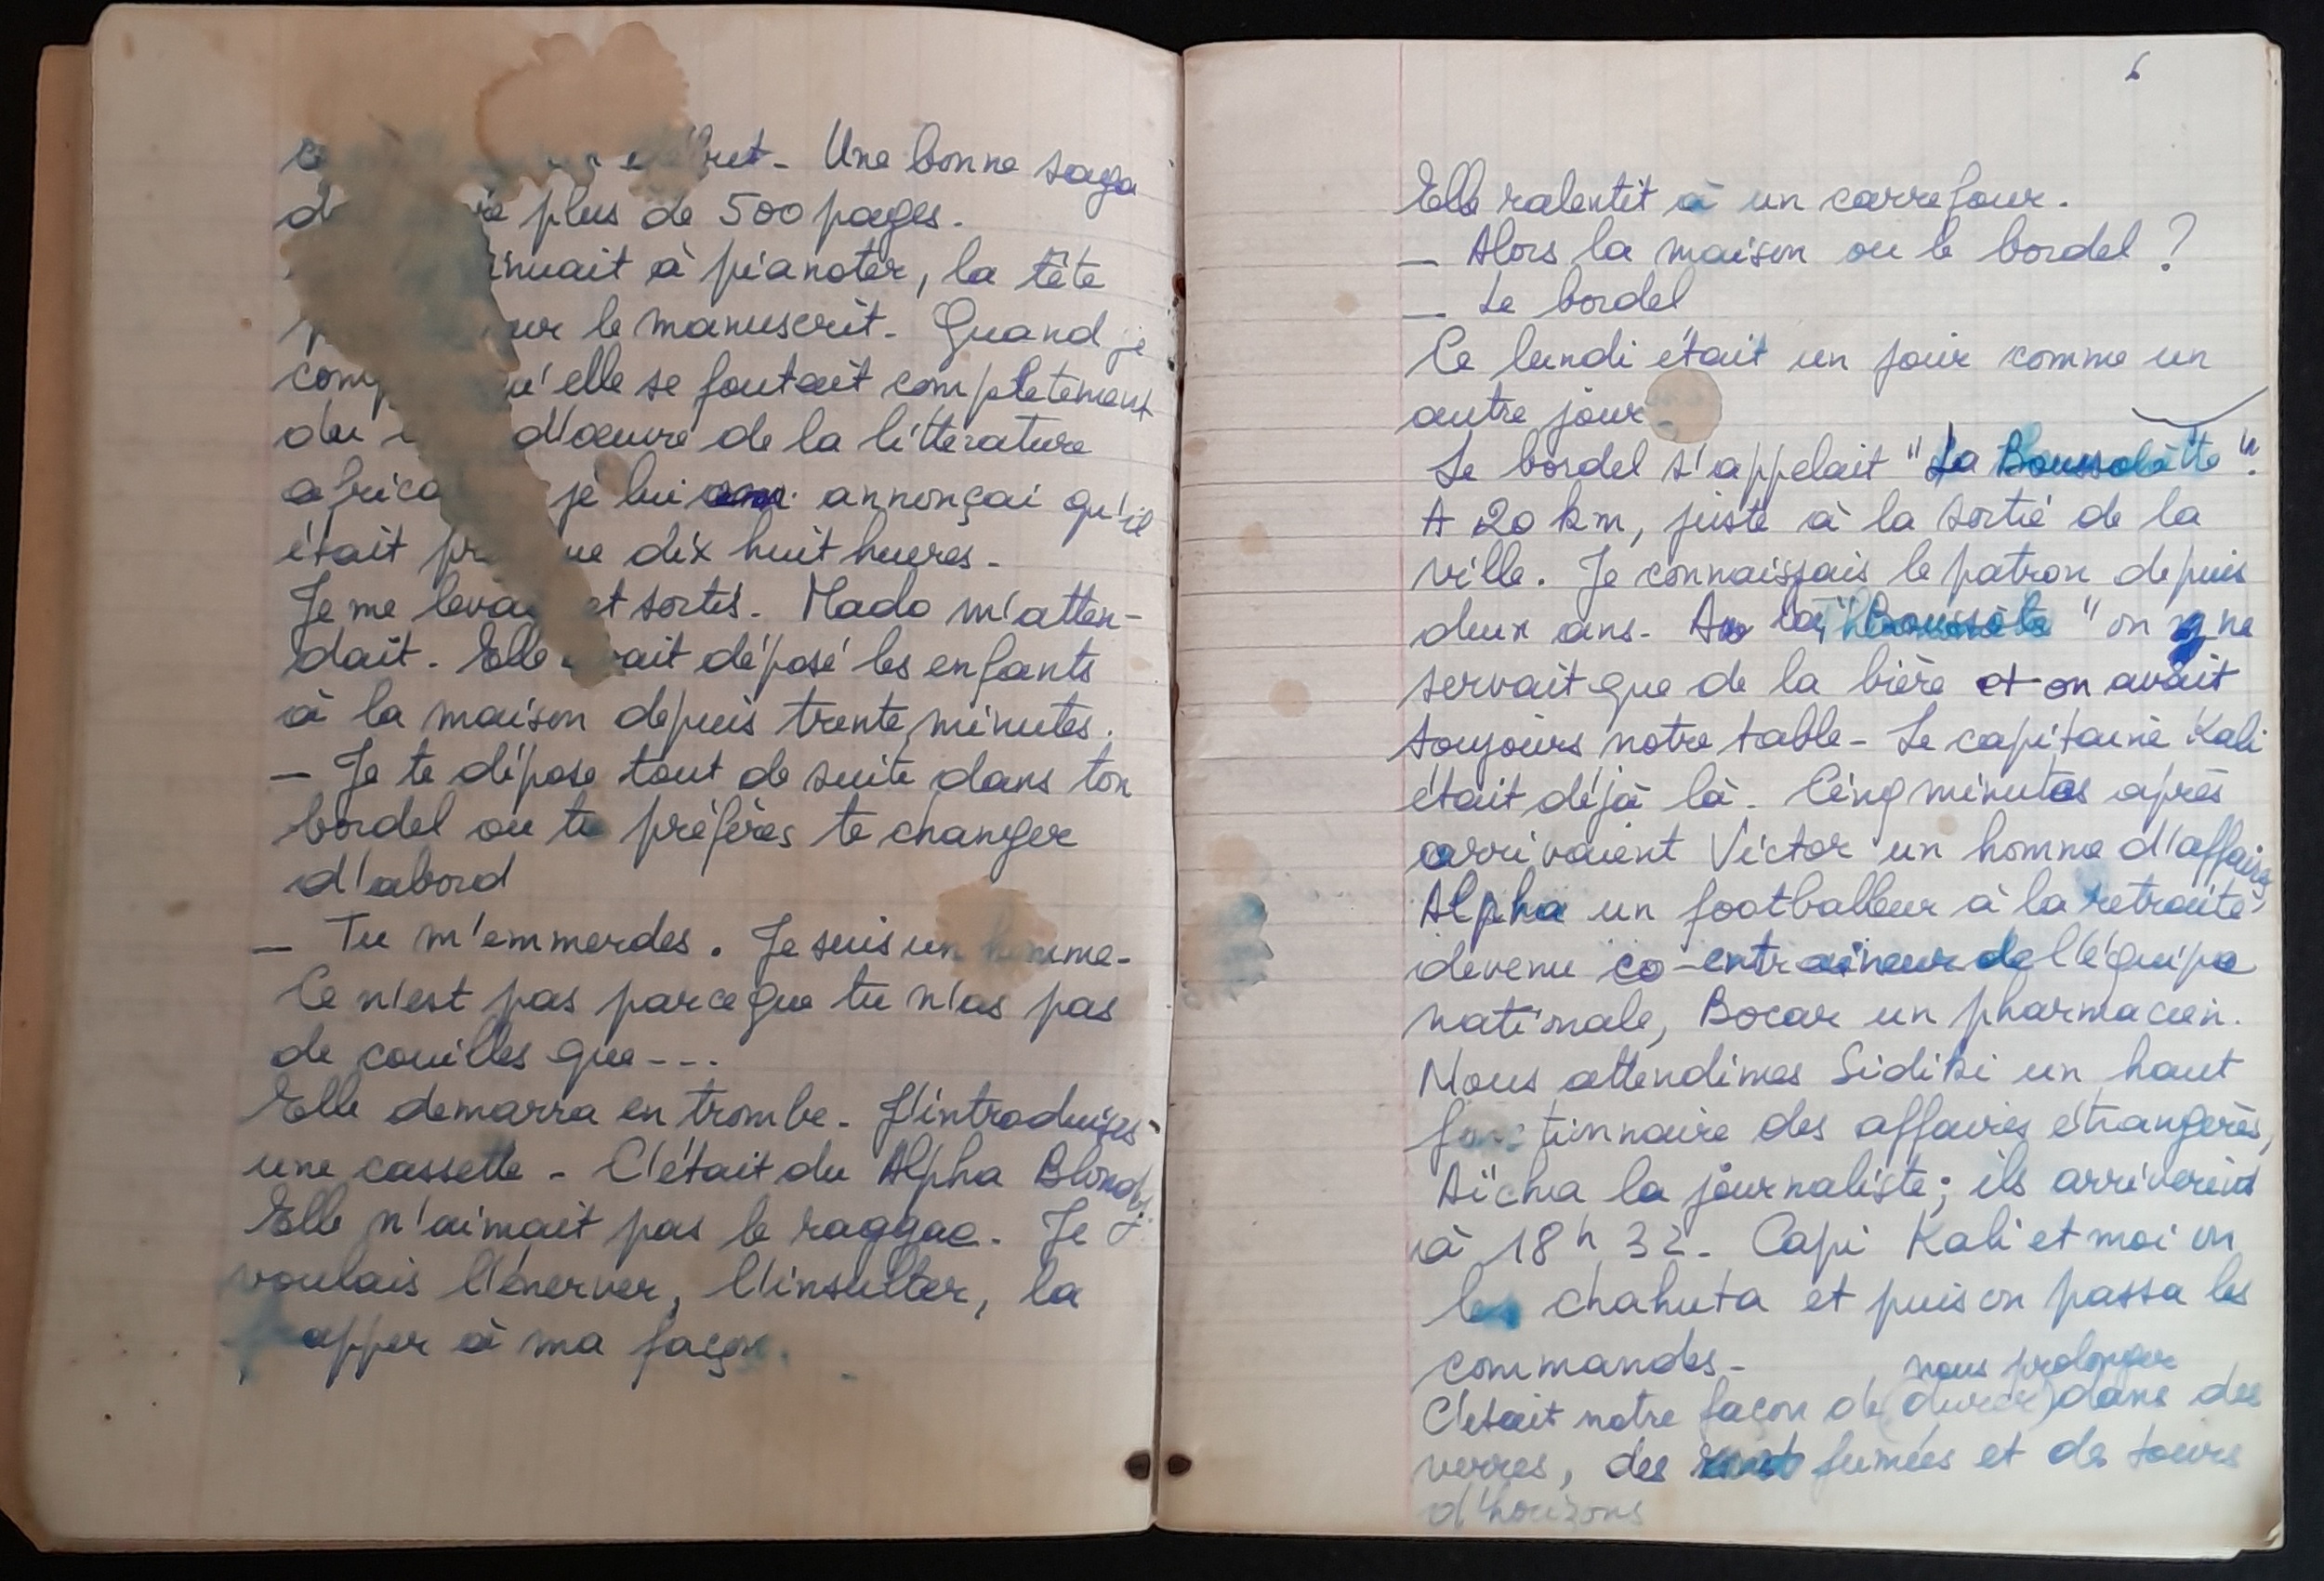 Une bonne saga
plus de 500 pages.
à pianoter, la tête
le manuscrit. Quand je
qu'elle se foutait completement
du d'œuvre de la littérature
je lui annonçai qu'il
était dix huit heures.
Je me levai et sortis. Mado m'atten-
dait. Elle avait déposé les enfants
à la maison depuis trente minutes.
— Je te dépose tout de suite dans ton
bordel ou tu préfères te changer
d'abord
— Tu m'emmerdes. Je suis un homme.
Ce n'est pas parceque tu n'as pas
de couilles que---
Elle demarra en trombe. J'introduisis
une cassette - C'était du Alpha Blondy.
Elle n'aimait pas le raggae. Je
voulais l'énerver, l'insulter, la
à ma façon.
6
Elle ralentit à un carrefour.
— Alors la maison ou le bordel ?
— Le bordel
Ce lundi était un jour comme un
autre jour.
Le bordel s'appelait "La
A 20 km, juste à la sortie de la
ville. Je connaissais le patron depuis
deux ans. la " on ne
servait que de la bière et on avait
toujours notre table - Le capitaine Kali
était déjà là. Cinq minutes après
arrivaient Victor un homme d'affaires
Alpha un footballeur à la retraite,
devenu co-entraineur de l'équipe
nationale, Bocar un pharmacien.
Nous attendimes Sidiki un haut
fonctionnaire des affaires étrangères,
Aïcha la journaliste; ils arrivèrent
à 18h 32. Capi Kali et moi on
les chahuta et puis on passa les
commandes -
nous prolonger
C'etait notre façon de (durer) dans des
verres, des fumées et de tours
d'horizons